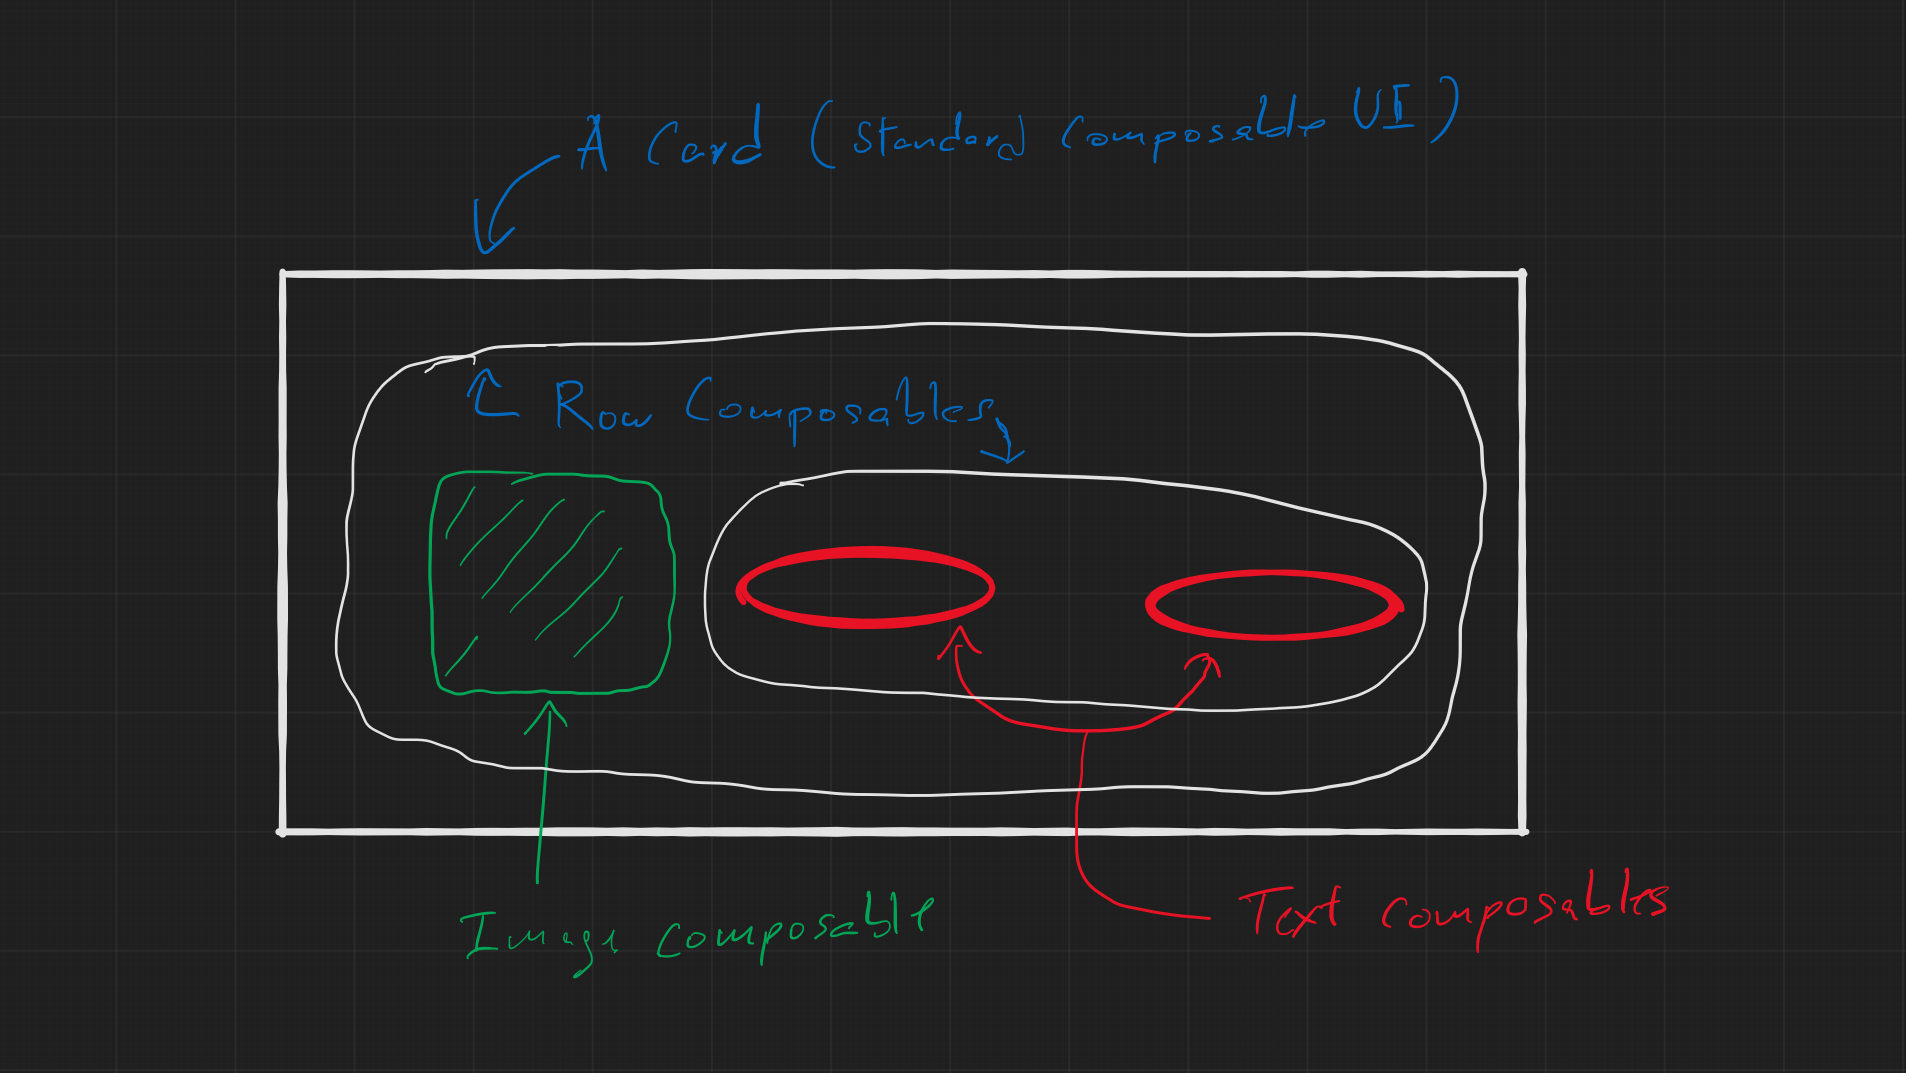 A Card (Standard Composable UI)
Row Composables
Image composable
Text composables